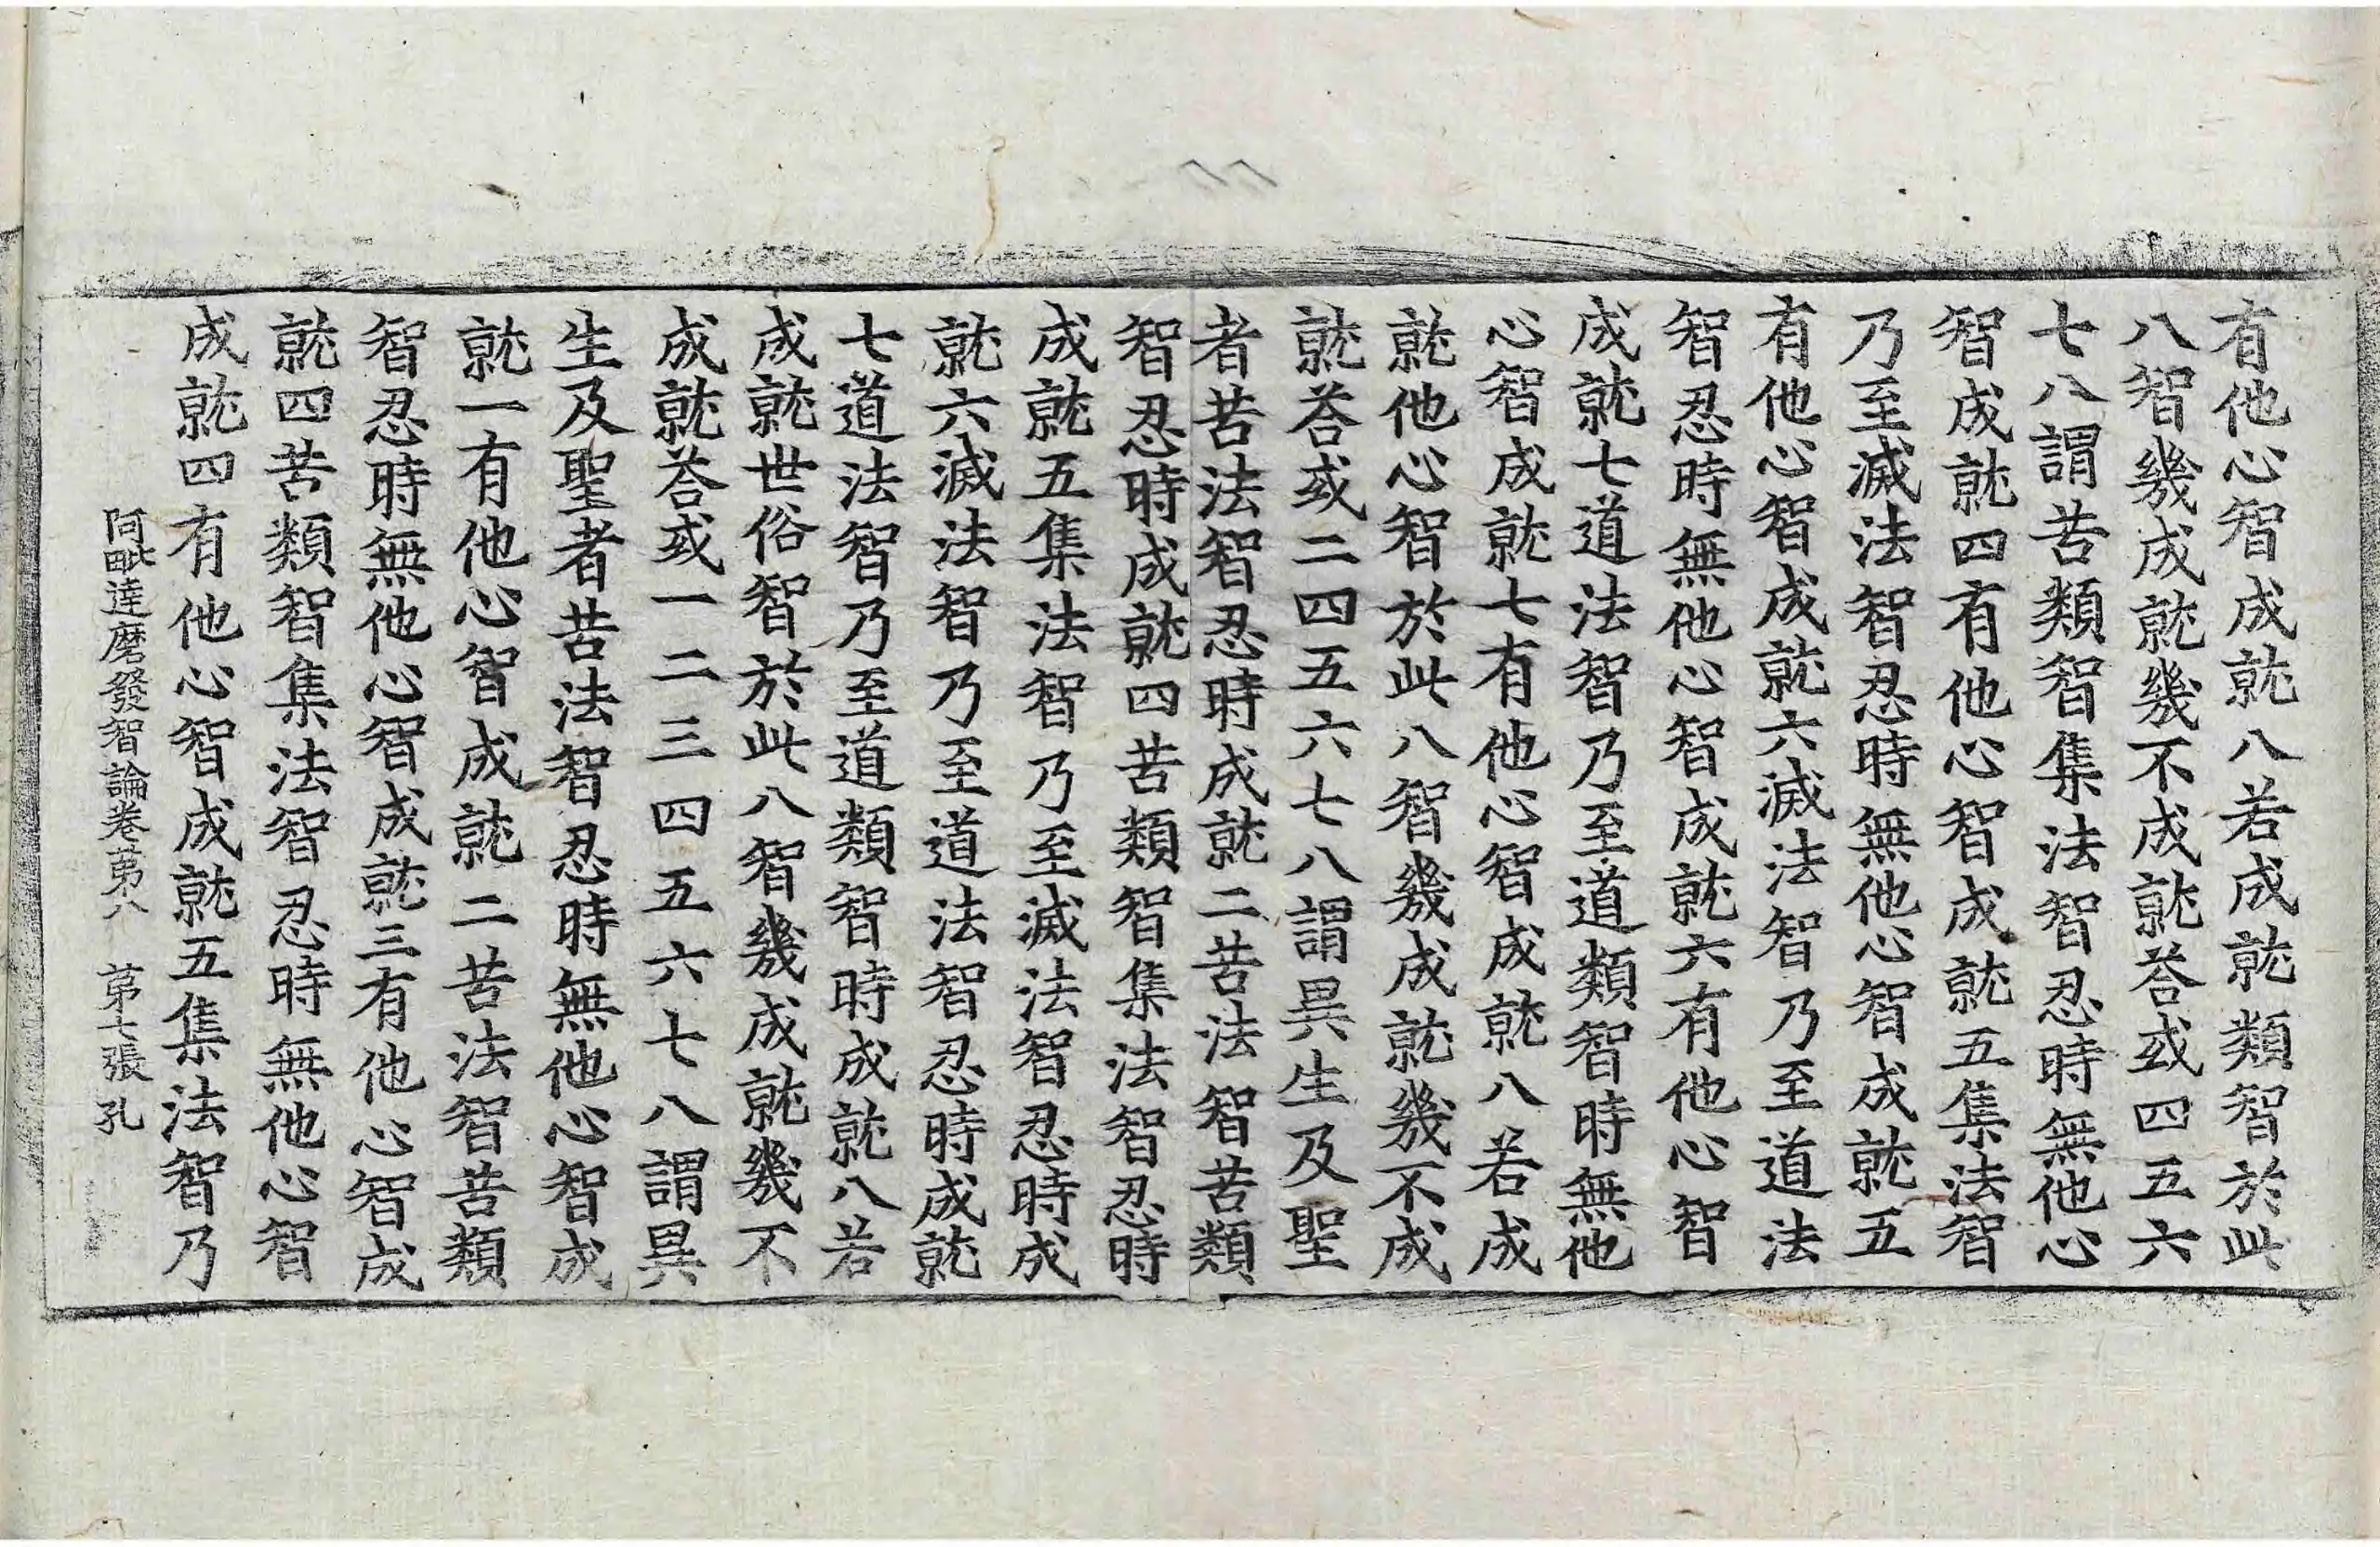 有他心智成就八若成就類智於此
八智幾成就幾不成就荅或四五六
七八謂苦類智集法智忍時無他心
智成就四有他心智成就五集法智
乃至滅法智忍時無他心智成就五
有他心智成就六滅法智乃至道法
智忍時無他心智成就六有他心智
成就七道法智乃至道類智時無他
心智成就七有他心智成就八若成
就他心智於此八智幾成就幾不成
就荅或二四五六七八謂異生及聖
者苦法智忍時成就二苦法智苦類
智忍時成就四苦類智集法智忍時
成就五集法智乃至滅法智忍時成
就六滅法智乃至道法智忍時成就
七道法智乃至道類智時成就八若
成就世俗智於此八智幾成就幾不
成就荅或一二三四五六七八謂異
生及聖者苦法智忍時無他心智成
就一有他心智成就二苦法智苦類
智忍時無他心智成就三有他心智成
就四苦類智集法智忍時無他心智
成就四有他心智成就五集法智乃
阿毗達磨發智論卷苐八 苐七張 孔